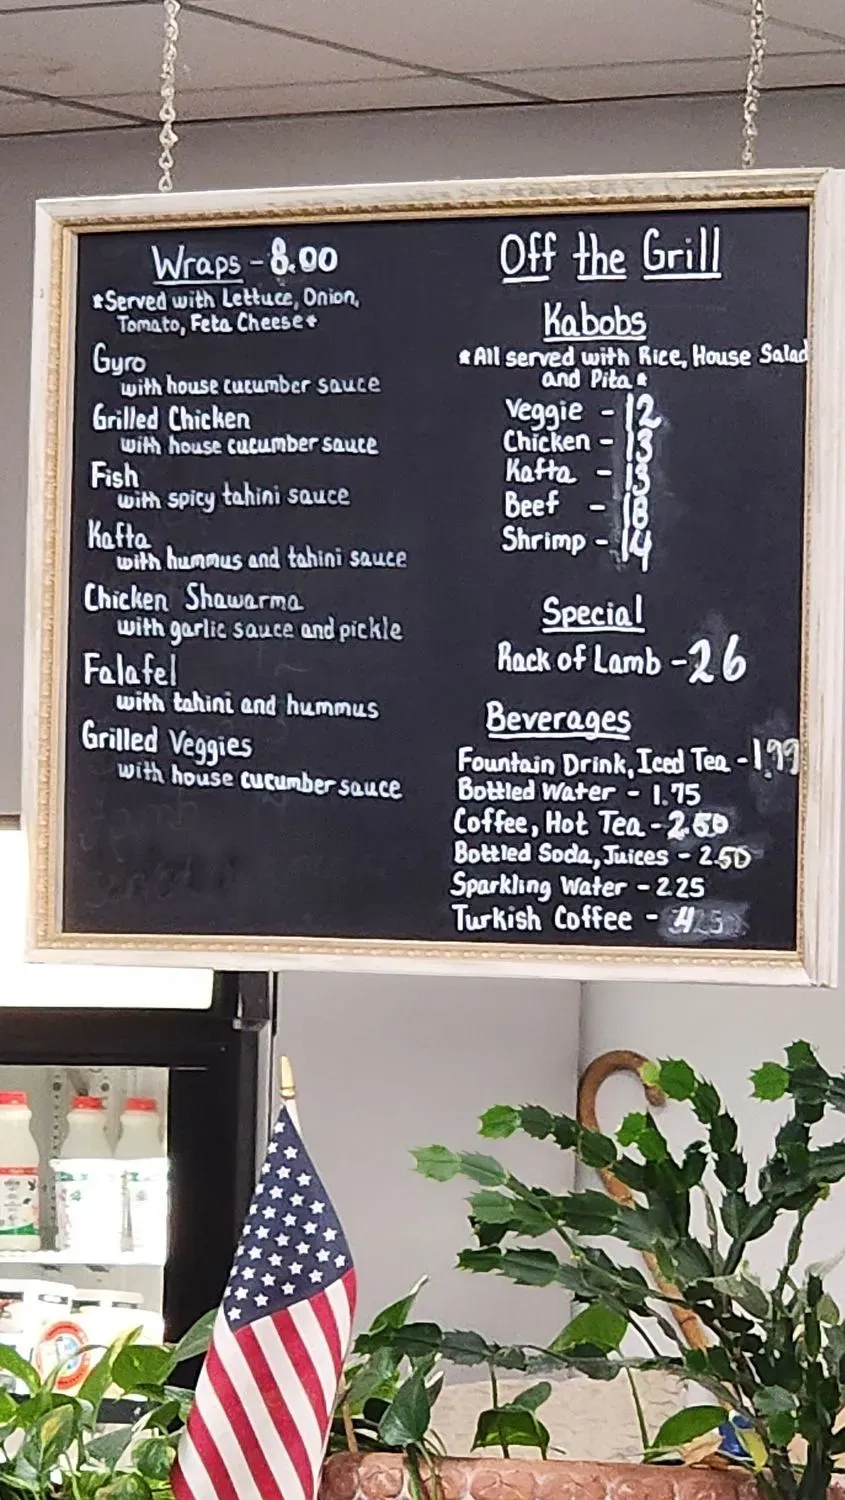 Wraps - 8.00
*Served with Lettuce, Onion,
Tomato, Feta Cheese*
Gyro
with house cucumber sauce
Grilled Chicken
with house cucumber sauce
Fish
with spicy tahini sauce
Kafta
with hummus and tahini sauce
Chicken Shawarma
with garlic sauce and pickle
Falafel
with tahini and hummus
Grilled Veggies
with house cucumber sauce
Off the Grill
Kabobs
*All served with Rice, House Salad
and Pita*
Veggie - 12
Chicken - 13
Kafta - 13
Beef - 18
Shrimp - 14
Special
Rack of Lamb - 26
Beverages
Fountain Drink, Iced Tea - 1.99
Bottled Water - 1.75
Coffee, Hot Tea - 2.50
Bottled Soda, Juices - 2.50
Sparkling Water - 2.25
Turkish Coffee -